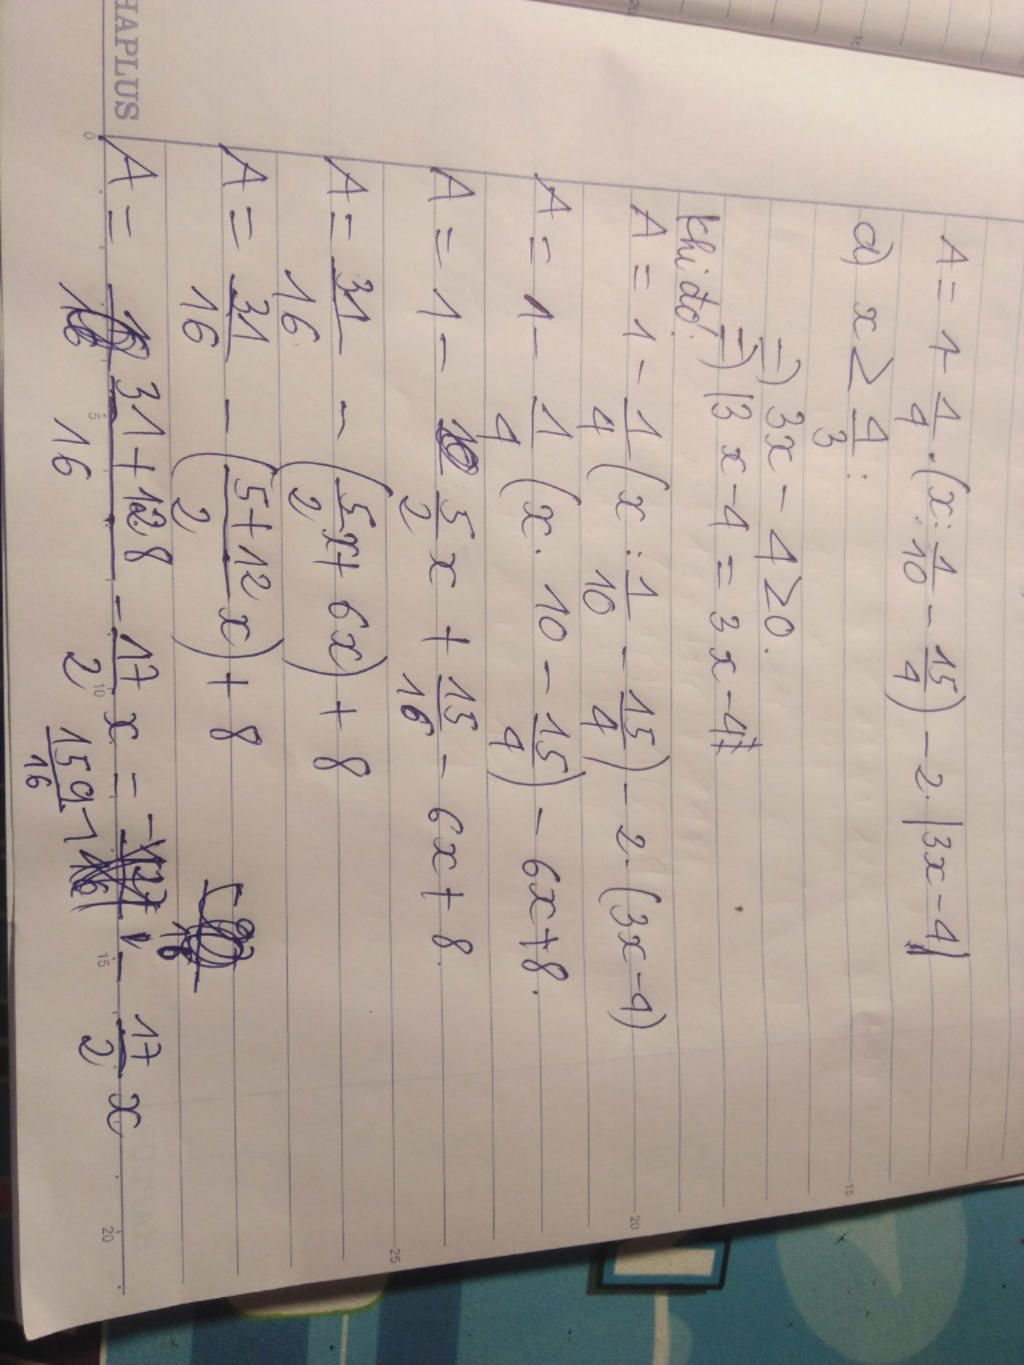 A = 1 - 1/4 . (x : 1/10 - 15/4) - 2. |3x - 4|
d) x ≥ 4/3 :
=) 3x - 4 ≥ 0.
=) |3x - 4 = 3x - 4
Khi đó:
A = 1 - 1/4 (x : 1/10 - 15/4) - 2. (3x - 4)
A = 1 - 1/4 (x . 10 - 15/4) - 6x + 8.
A = 1 - 5/2 x + 15/16 - 6x + 8.
A = 31/16 - (5/2 x + 6x) + 8
A = 31/16 - (5 + 12/2 x) + 8
A = 31 + 128/16 - 17/2 x = 159/16 - 17/2 x
HAPLUS
0 5 10 15 20
25
20
15